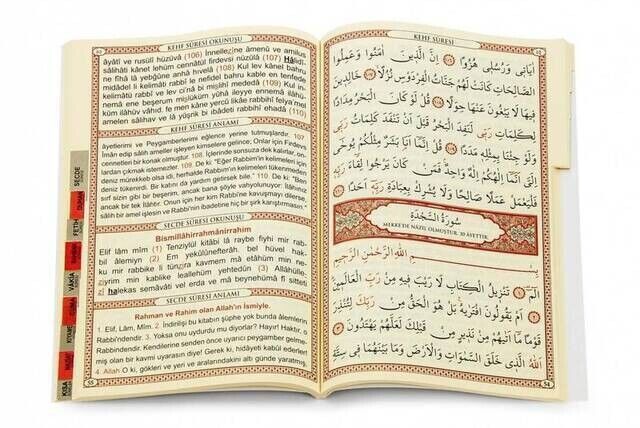 KEHF SÛRESİ OKUNUŞU
âyâtî ve rusulî hüzüvâ (106) İnnellezîne âmenû ve amilus
sâlihâti kânet lehüm cennâtül firdevsi nüzülâ (107) Hâlidî-
(108) Kul lev kânel bahru
midâdel li kelimâti rabbî le nefidel bahru kable en tenfede
kelimâtü rabbî ve lev ci'nâ bi mislihî mededâ (109) Kul in-
nemâ ene beşerum mislüküm yûhâ ileyye ennemâ ilâhü-
küm ilâhüv vâhid, fe men kâne yercû likâe rabbihî felya'mel
amelen sâlihav ve lâ yüşrik bi ibâdeti rabbihî ehadâ (110)
KEHF SÛRESİ ANLAMI
âyetlerimi ve Peygamberlerimi eğlence yerine tutmuşlardır. 107
İman edip sâlih ameller işleyen kimselere gelince; Onlar için Firdevs
cennetleri bir konak olmuştur. 108. İçlerinde sonsuza dek kalırlar, on-
lardan çıkmak istemezler. 109. De ki: "Eğer Rabbim'in kelimeleri için
deniz mürekkeb olsa idi, herhalde Rabbim'in kelimeleri tükenmeden
deniz tükenirdi. Bir katını da yardım getirsek bile." 110. De ki: "Ben
sırf sizin gibi bir beşerim, ancak bana şöyle vahyolunuyor: İlâhınız
ancak bir tek İlâhtır. Onun için her kim Rabbi'ne kavuşmayı dilerse,
sâlih bir amel işlesin ve Rabbi'nin ibadetine hiç bir şirk karıştırmasın."
SECDE SÛRESİ OKUNUŞU
Bismillâhirrahmânirrahîm
Elif lâm mîm (1) Tenzîylül kitâbi lâ raybe fîyhi mir rab-
bil âlemîyn (2) Em yekûlûnefterâh, bel hüvel hak-
ku mir rabbike li tünzira kavmem mâ etâhüm min ne-
zîyrim min kablike leallehüm yehtedûn (3) Allâhülle-
zî halekas semâvâti vel erda ve mâ beynehümâ fî sitteti
SECDE SÛRESİ ANLAMI
Rahman ve Rahim olan Allah'ın İsmiyle.
1. Elif, Lâm, Mîm. 2. İndirilişi bu kitabın şüphe yok bunda âlemlerin
Rabbi'ndendir. 3. Yoksa onu uydurdu mu diyorlar? Hayır! Haktır, o
Rabbi'ndendir. Kendilerine senden önce uyarıcı peygamber gelme-
miş olan bir kavmi uyarasın diye! Gerek ki, hidâyeti kabûl ederler!
4. Allah O ki, gökleri ve yeri ve aralarındakini altı günde yaratmış,
55
SECDE
DUHAN
FETİH
VÂKIA
KIYAME
KISA
KEHF SÛRESİ
اٰيَاتٖي وَرُسُلٖي هُزُوًا ﴿١٠٦﴾ اِنَّ الَّذٖينَ اٰمَنُوا وَعَمِلُوا
الصَّالِحَاتِ كَانَتْ لَهُمْ جَنَّاتُ الْفِرْدَوْسِ نُزُلًا ﴿١٠٧﴾ خَالِدٖينَ
فٖيهَا لَا يَبْغُونَ عَنْهَا حِوَلًا ﴿١٠٨﴾ قُلْ لَوْ كَانَ الْبَحْرُ مِدَادًا
لِكَلِمَاتِ رَبّٖي لَنَفِدَ الْبَحْرُ قَبْلَ اَنْ تَنْفَدَ كَلِمَاتُ رَبّٖي
وَلَوْ جِئْنَا بِمِثْلِهٖ مَدَدًا ﴿١٠٩﴾ قُلْ اِنَّمَا اَنَا بَشَرٌ مِثْلُكُمْ يُوحٰى
اِلَيَّ اَنَّمَا اِلٰهُكُمْ اِلٰهٌ وَاحِدٌ فَمَنْ كَانَ يَرْجُوا لِقَاءَ رَبِّهٖ
فَلْيَعْمَلْ عَمَلًا صَالِحًا وَلَا يُشْرِكْ بِعِبَادَةِ رَبِّهٖ اَحَدًا ﴿١١٠﴾
سُورَةُ السَّجْدَةِ
MEKKE'DE NÂZİL OLMUŞTUR. 30 ÂYETTİR.
بِسْمِ اللّٰهِ الرَّحْمٰنِ الرَّحٖيمِ
الٓمٓ ﴿١﴾ تَنْزٖيلُ الْكِتَابِ لَا رَيْبَ فٖيهِ مِنْ رَبِّ الْعَالَمٖينَ
﴿٢﴾ اَمْ يَقُولُونَ افْتَرٰيهُ بَلْ هُوَ الْحَقُّ مِنْ رَبِّكَ لِتُنْذِرَ
قَوْمًا مَا اَتٰيهُمْ مِنْ نَذٖيرٍ مِنْ قَبْلِكَ لَعَلَّهُمْ يَهْتَدُونَ ﴿٣﴾
اَللّٰهُ الَّذٖي خَلَقَ السَّمٰوَاتِ وَالْاَرْضَ وَمَا بَيْنَهُمَا فٖي سِتَّةِ
54